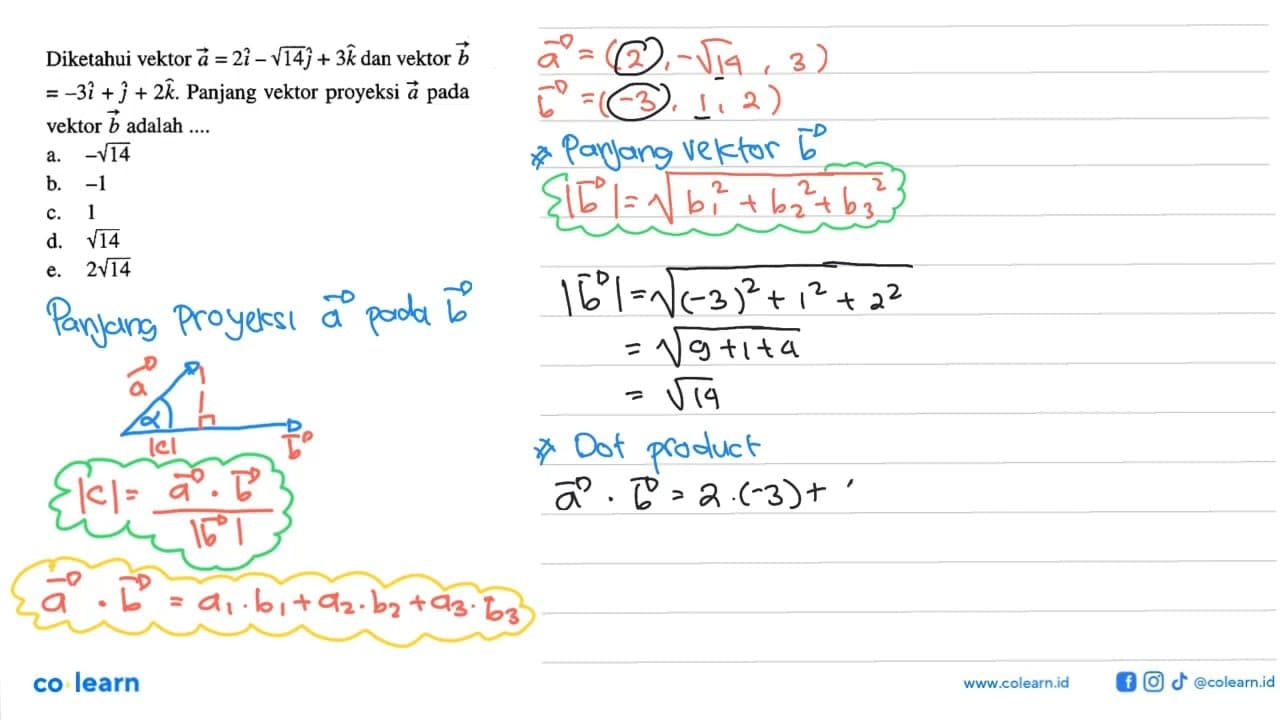 Diketahui vektor a⃗ = 2î – √14ĵ + 3k̂ dan vektor b⃗
= –3î + ĵ + 2k̂. Panjang vektor proyeksi a⃗ pada
vektor b⃗ adalah ....
a. –√14
b. –1
c. 1
d. √14
e. 2√14
Panjang Proyeksi a⃗ pada b⃗
a⃗
α
|c|
b⃗
|c| = a⃗ . b⃗ / |b⃗|
a⃗ . b⃗ = a₁.b₁ + a₂.b₂ + a₃.b₃
a⃗ = (2, -√14, 3)
b⃗ = (-3, 1, 2)
* Panjang vektor b⃗
|b⃗| = √b₁² + b₂² + b₃²
|b⃗| = √(-3)² + 1² + 2²
= √9 + 1 + 4
= √14
* Dot product
a⃗ . b⃗ = 2.(-3) +
co learn
www.colearn.id
@colearn.id